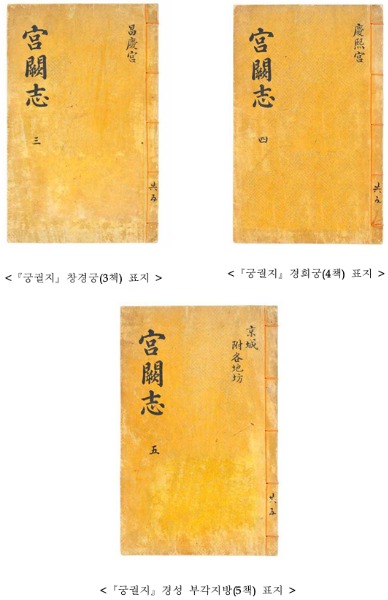 昌慶宮
宮闕志
三
共五
<『궁궐지』 창경궁(3책) 표지 >
慶熙宮
宮闕志
四
共五
<『궁궐지』 경희궁(4책) 표지 >
京城
附各地坊
宮闕志
五
共五
<『궁궐지』 경성 부각지방(5책) 표지 >